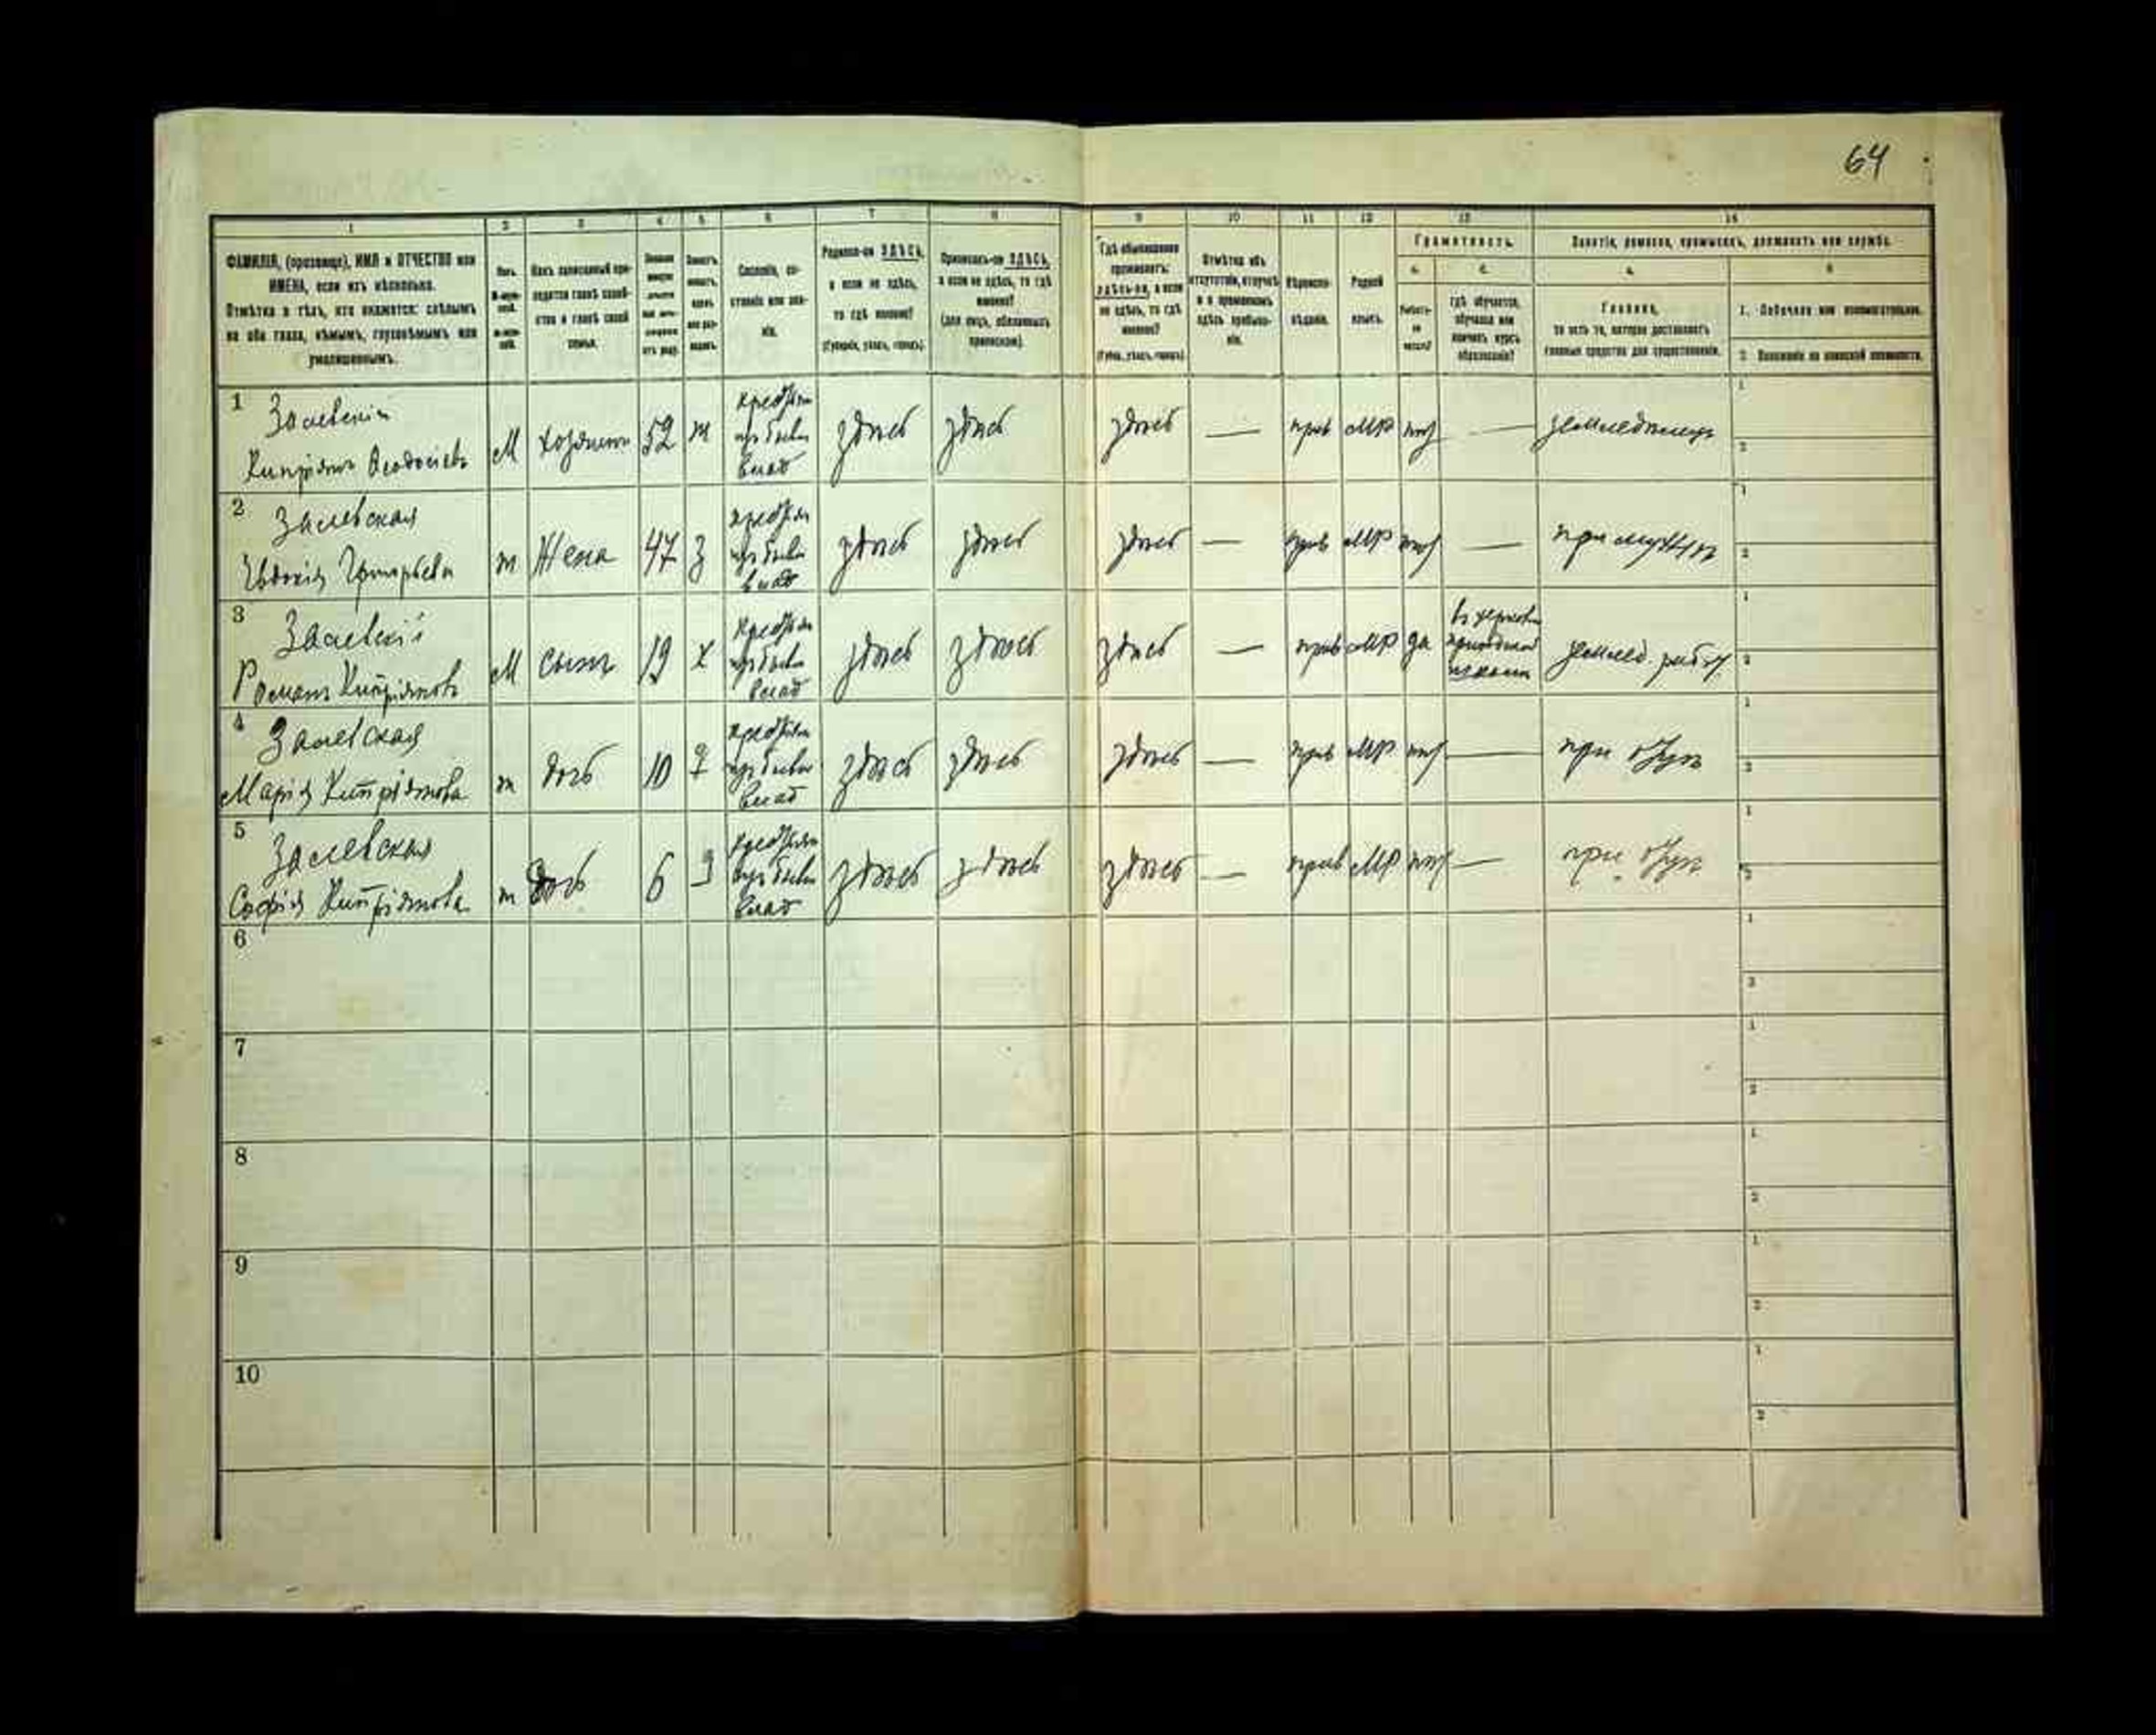 64
1 2 3 4 5 6 7 8 9 10 11 12 13 14
ФАМИЛІЯ, (прозвище), ИМЯ и ОТЧЕСТВО или
ИМЕНА, если ихъ нѣсколько.
Отмѣтка о тѣхъ, кто окажется: слѣпымъ
на оба глаза, нѣмымъ, глухонѣмымъ или
умалишеннымъ.
Полъ.
Какъ записанный при-
ходится главѣ хозяй-
ства и главѣ своей
семьи.
Сословіе, со-
стояніе или зва-
ніе.
Родился-ли ЗДѢСЬ,
а если не здѣсь,
то гдѣ именно?
(Губернія, уѣздъ, городъ).
Приписанъ-ли ЗДѢСЬ,
а если не здѣсь, то гдѣ
именно?
(для лицъ, обязанныхъ
припискою).
Гдѣ обыкновенно
проживаетъ:
здѣсь-ли, а если
не здѣсь, то гдѣ
именно?
(Губ., уѣздъ, городъ).
Отмѣтка объ
отсутствіи, отлучкѣ
и о временномъ
здѣсь пребыва-
ніи.
Вѣроиспо-
вѣданіе.
Родной
языкъ.
Грамотность.
а. б.
Умѣетъ-
ли
читать?
Гдѣ обучается,
обучался или
кончилъ курсъ
образованія?
Занятіе, ремесло, промыселъ, должность или служба.
а. б.
Главное,
то есть то, которое доставляетъ
главныя средства для существованія.
1. Побочное или вспомогательное.
2. Положеніе по воинской повинности.
1 Залевскій
Кипріянъ Ѳеодосіевъ М хозяинъ 52 ж крестьян
влад здѣсь здѣсь здѣсь — прав МР нѣт — земледѣлецъ 1 2
2 Залевская
Евдокія Григорьева ж Жена 47 з крестьян
влад здѣсь здѣсь здѣсь — прав МР нѣт — при мужѣ 1 2
3 Залевскій
Романъ Кипріяновъ М сынъ 19 х крестьян
влад здѣсь здѣсь здѣсь — прав МР да въ церковно
приходской
школѣ землед. работ. 1 2
4 Залевская
Марія Кипріянова ж дочь 10 д крестьян
влад здѣсь здѣсь здѣсь — прав МР нѣт — при отцѣ 1 2
5 Залевская
Софія Кипріянова ж дочь 6 д крестьян
влад здѣсь здѣсь здѣсь — прав МР нѣт — при отцѣ 1 2
6 1 2
7 1 2
8 1 2
9 1 2
10 1 2